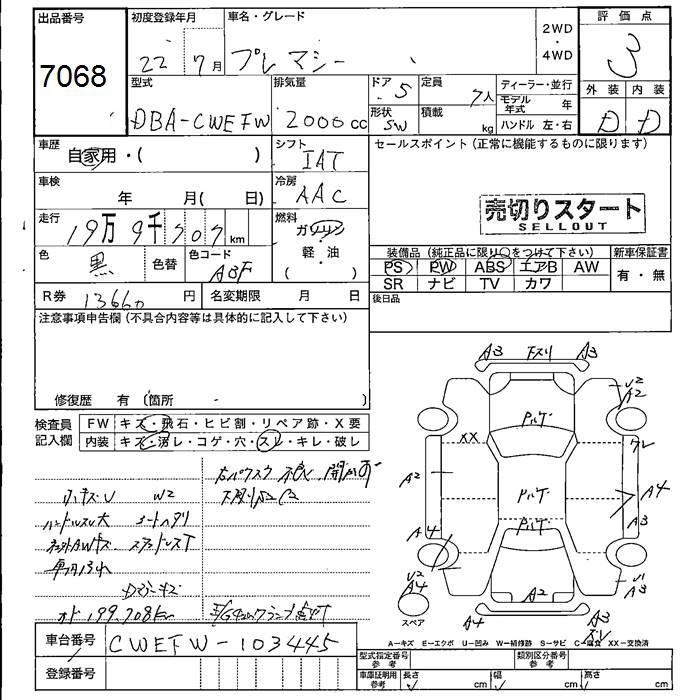 出品番号
7068
初度登録年月
22 7月
車名・グレード
プレマシー
2WD
・
4WD
評価点
3
型式
DBA-CWEFW
排気量
2000cc
ドア 5
形状 SW
定員
7人
積載
kg
ディーラー・並行
モデル年式 年
ハンドル 左・右
外装 内装
D D
車歴
自家用・( )
シフト
IAT
車検
年 月( 日)
冷房
AAC
走行
19万9千707km
燃料
ガソリン
・
軽・油
( )
色
黒
色替
色コード
A3F
R券 13660円
名変期限 月 日
セールスポイント(正常に機能するものに限ります)
売切りスタート
SELLOUT
装備品(純正品に限り○をつけて下さい)
新車保証書
PS PW ABS エアB AW
SR ナビ TV カワ
有・無
後日品
注意事項申告欄(不具合内容等は具体的に記入して下さい)
修復歴 有(箇所 )
検査員
記入欄
FW キズ・飛石・ヒビ割・リペア跡・X要
内装 キズ・汚レ・コゲ・穴・スレ・キレ・破レ
W2
オド 199,708km
車台番号
CWEFW-103445
登録番号
A3 下スリ A3
U2
A2
XX
A2
A4
A4
A3
A4
U2
A4
A2
U1
A3
A4
A3
スペア
A-キズ E-エクボ U-凹み W-補修跡 S-サビ C-腐食 XX-交換済
型式指定番号
参考
類別区分番号
参考
車庫証明用
参考
長さ cm
幅 cm
高さ cm